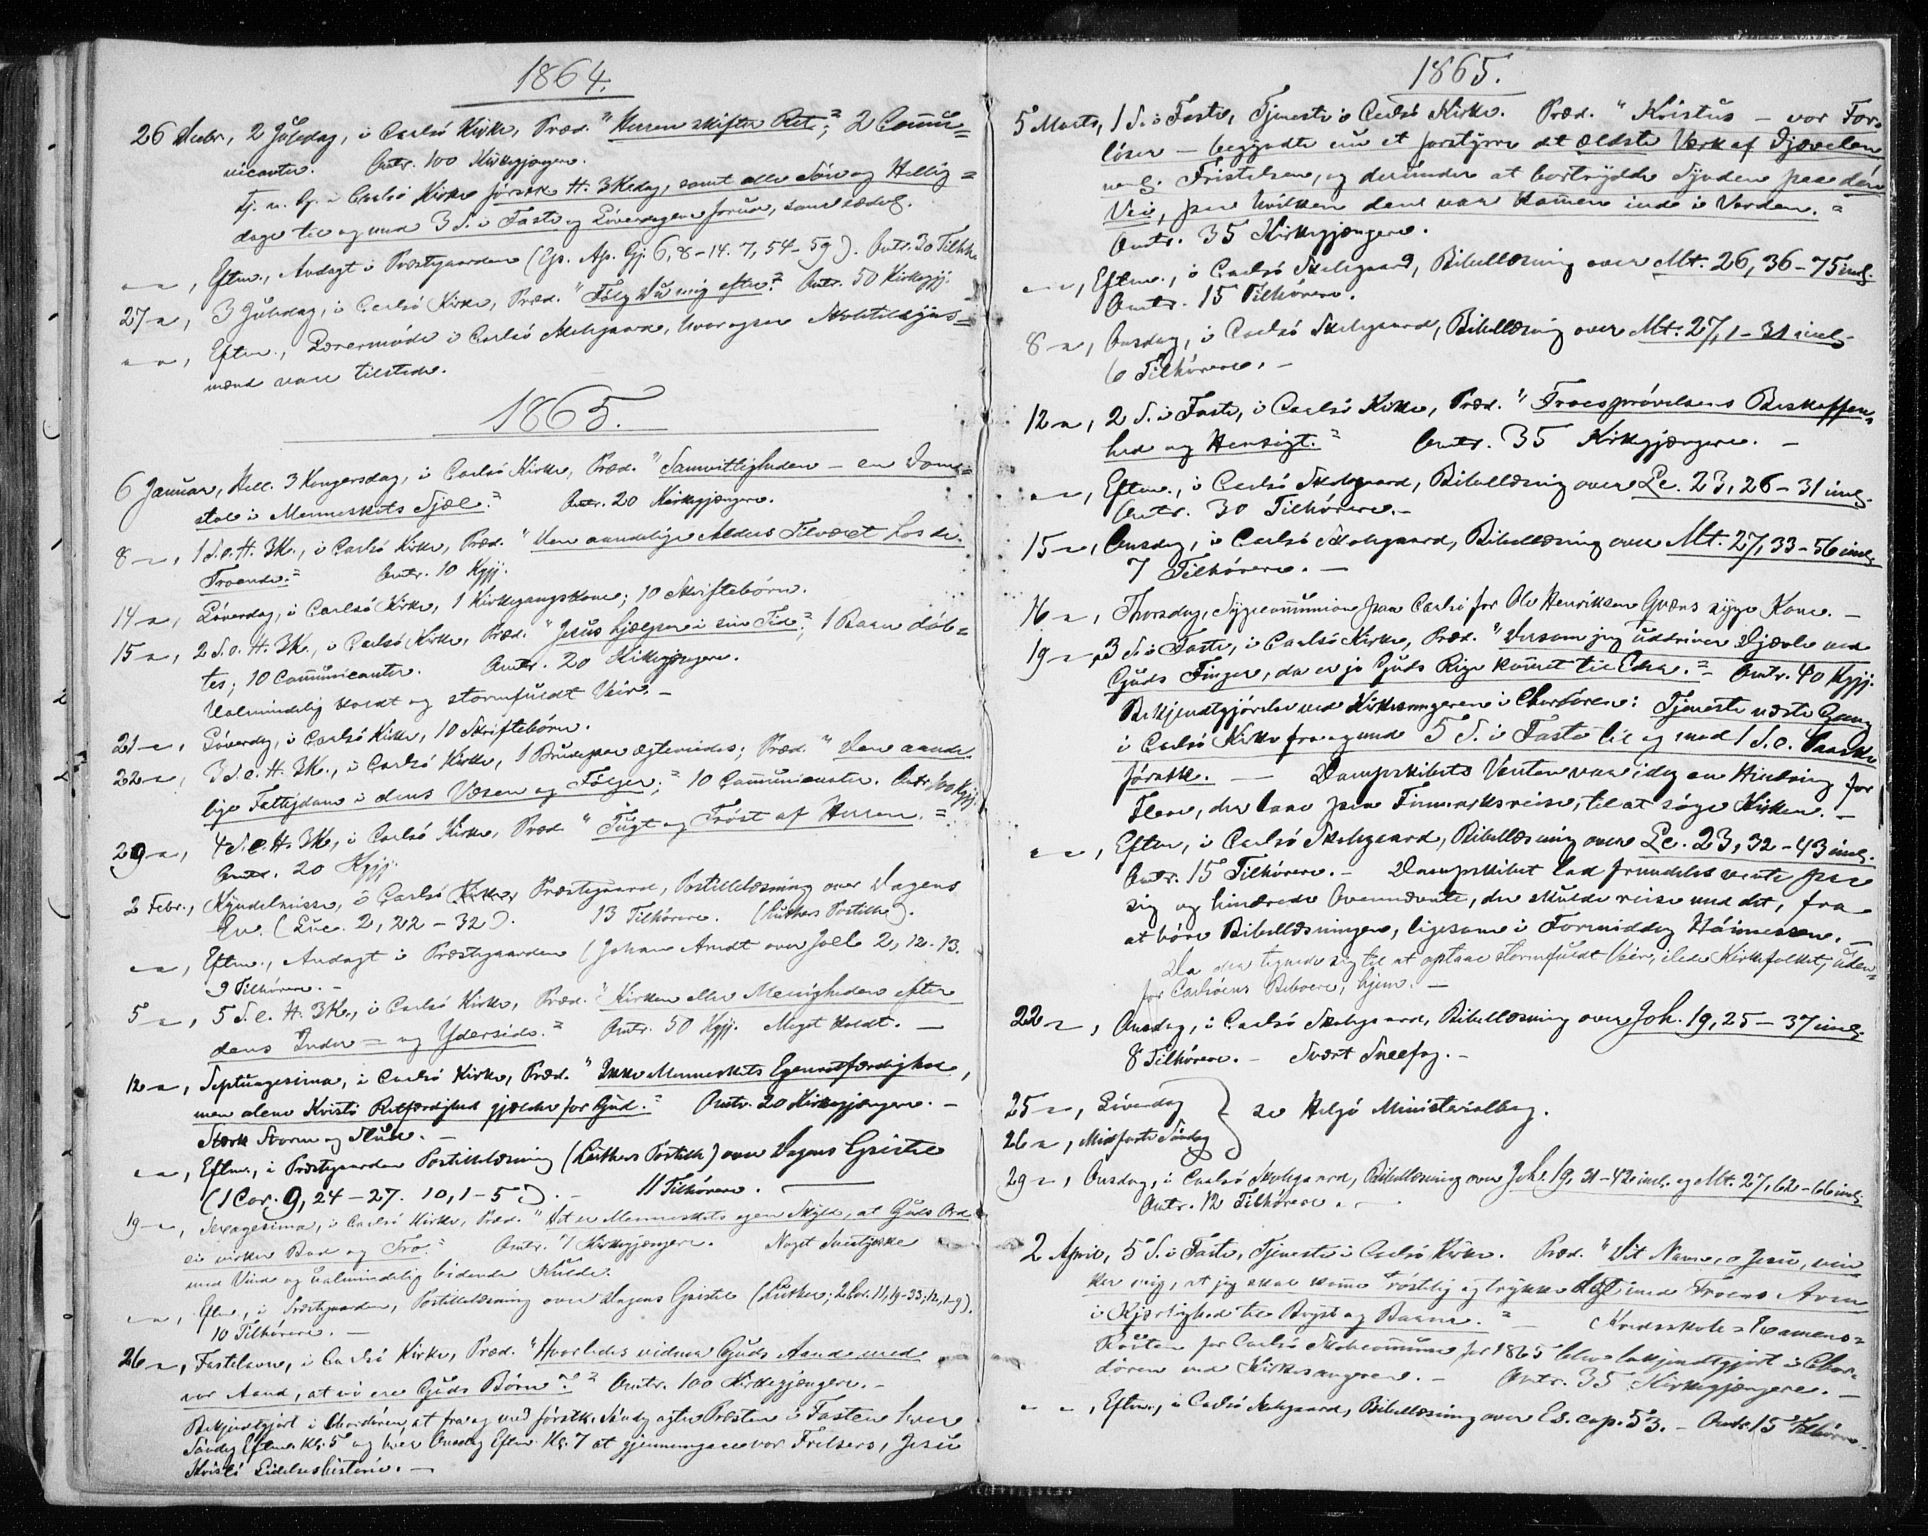 1864.
26 Decbr., 2 Juledag, i Carlsö Kirke, Præd. "Herren skifter Ret"; 2 Commu=
nicanter. Omtr. 100 Kirkegjængere.
Tj. n. G. i Carlsö Kirke förstk. H. 3 K.dag, samt alle Sön- og Hellig=
dage til og med 3 S. i Faste og Löverdagen forud, som sædvl.
— , Eftm., Andagt i Præstegaarden (Ap. Gj. 6, 8-14. 7, 54-59). Omtr. 30 Tilhh.
27 — , 3 Juledag, i Carlsö Kirke, Præd. "Fölg Du mig efter." Omtr. 50 Kirkegjj.
— , Eftm., Lærermöde i Carlsö Skolegaard, hvor ogsaa Skoletilsyns=
mænd vare tilstede.
1865.
6 Januar, Hell. 3 Kongersdag, i Carlsö Kirke, Præd. "Samvittigheden — en Dom=
stol i Menneskets Sjæl." Omtr. 20 Kirkegjængere.
8 — , 1 S. e. H. 3 K., i Carlsö Kirke, Præd. "Den aandelige Alders Tilvæxt hos de
Troende." Omtr. 10 Kgjj.
14 — , Löverdag, i Carlsö Kirke, 1 Kirkegangskone; 10 Skriftebörn.
15 — , 2 S. e. H. 3 K., i Carlsö Kirke, Præd. "Jesus hjælper i sin Tid"; 1 Barn döb=
tes; 10 Communicanter. Omtr. 20 Kirkegjængere.
Ualmindelig koldt og stormfuldt Veir. —
21 — , Löverdag, i Carlsö Kirke, 10 Skriftebörn.
22 — , 3 S. e. H. 3 K., i Carlsö Kirke, 1 Brudepar ægteviedes; Præd. "Den aande=
lige Fattigdom i dens Væsen og Fölger;" 10 Communicanter. Omtr. Kgjj.
29 — , 4 S. e. H. 3 K., i Carlsö Kirke, Præd. "Tugt og Tröst af Herren."
Omtr. 20 Kgjj.
2 Febr., Kyndelmisse, i Carlsö Kirke, Præstegaard, Postillelæsning over Dagens
Ev. (Luc. 2, 22-32). 13 Tilhörere. (Luthers Postille).
— , Eftm., Andagt i Præstegaarden (Johan Arndt over Joel 2, 12-13.
9 Tilhörere. —
5 — , 5 S. e. H. 3 K., i Carlsö Kirke, Præd. "Kirken eller Menigheden efter
dens Inder= og Yderside." Omtr. 50 Kgjj. Meget koldt. —
12 — , Septuagesima, i Carlsö Kirke, Præd. "Ikke Menneskets Egenretfærdighed,
men alene Kristi Retfærdighed gjælder for Gud." Omtr. 20 Kirkegjængere. —
Stærk Storm og Kulde. —
— , Eftm., i Præstegaarden Postillelæsning (Luthers Postille) over Dagens Epistel
(1 Cor. 9, 24-27. 10, 1-5). — 11 Tilhörere. —
19 — , Sexagesima, i Carlsö Kirke, Præd. "Det er Menneskets egen Skyld, at Guds Ord
ei virker Bod og Tro." Omtr. 7 Kirkegjængere. Noget Snetjukke
med Vind og ualmindelig bidende Kulde.
— , Eftm., i Præstegaarden, Postillelæsning over Dagens Epistel (Luther; 2 Cor. 11, 19-33; 12, 1-9).
10 Tilhörere. —
26 — , Fastelavn, i Carlsö Kirke, Præd. "Hvorledes vidner Guds Aand med
vor Aand, at vi ere Guds Börn?" Omtr. 100 Kirkegjængere. —
Bekjendtgjort i Chordören, at fra og med förstk. Söndg agter Præsten i Fasten hver
Söndg Eftm. Kl. 5 og hver Onsdag Eftm. Kl. 7 at gjennemgaae vor Frelsers, Jesu
Kristi Lidelseshistorie. —
1865.
5 Marts, 1 S. i Faste, Tjeneste i Carlsö Kirke. Præd. "Kristus — vor For=
löser — begyndte med at forstyrre det ældste Værk af Djævelen
nml. Fristelsen, og derunder at borttrydde Synden paa den
Vei, paa hvilken den var kommen ind i Verden."
Omtr. 35 Kirkegjængere.
— , Eftm., i Carlsö Skolegaard, Bibellæsning over Mt. 26, 36-75 incl.
Omtr. 15 Tilhörere.
8 — , Onsdag, i Carlsö Skolegaard, Bibellæsning over Mt. 27, 1-31 incl.
6 Tilhörere. —
12 — , 2 S. i Faste, i Carlsö Kirke, Præd. "Troesprövelsens Beskaffen=
hed og Hensigt." Omtr. 35 Kirkegjængere. —
— , Eftm., i Carlsö Skolegaard, Bibellæsning over Lc. 23, 26-31 incl.
Omtr. 30 Tilhörere. —
15 — , Onsdag, i Carlsö Skolegaard, Bibellæsning over Mt. 27, 33-56 incl.
7 Tilhörere. —
16 — , Thorsdag, Sygecommunion paa Carlsö for Ole Henriksen Qvæns syge Kone. —
19 — , 3 S. i Faste, i Carlsö Kirke, Præd. "Dersom jeg uddriver Djævle ved
Guds Finger, da er jo Guds Rige kommet til Eder." Omtr. 40 Kgjj.
Bekjendtgjörelse ved Kirkesangeren i Chordören: Tjeneste næste Gang
i Carlsö Kirke fra og med 5 S. i Faste til og med 1 S. e. Paaske
förstk. — Dampskibets Venten var idag en Hindring for
Flere, der laae paa Finmarksreise, til at söge Kirken. —
— , Eftm., i Carlsö Skolegaard, Bibellæsning over Lc. 23, 32-43 incl.
Omtr. 15 Tilhörere. — Dampskibet lod fremdeles vente paa
sig og hindrede Ovennævnte, der skulde reise med det, fra
at höre Bibellæsningen, ligesom i Formiddag Höimessen. —
Da det tegnede sig til at optaae stormfuldt Veir, ilede Kirkefolket, uden=
for Carlsöens Beboere, hjem. —
22 — , Onsdag, i Carlsö Skolegaard, Bibellæsning over Joh. 19, 25-37 incl.
8 Tilhörere. — Svært Sneefog. —
25 — , Löverdag
26 — , Midfaste Söndag } se Helgö Ministerialbog.
29 — , Onsdag, i Carlsö Skolegaard, Bibellæsning over Joh. 19, 31-42 incl. og Mt. 27, 62-66 incl.
Omtr. 12 Tilhörere. —
2 April, 5 S. i Faste, Tjeneste i Carlsö Kirke. Præd. "Dit Navn, o Jesu, vin
ker mig, at jeg skal komme tröstelig og trykke Dig med Troens Arm
i Kjærlighed til Bryst og Barm." — (Kredsskole=Examens=
Röiten for Carlsö Skolecommune for 1865 blev bekjendtgjort i Chor=
dören ved Kirkesangeren. — Omtr. 35 Kirkegjængere. —
— , Eftm., i Carlsö Skolegaard, Bibellæsning over Es. cap. 53. — Omtr. 15 Tilhörere.